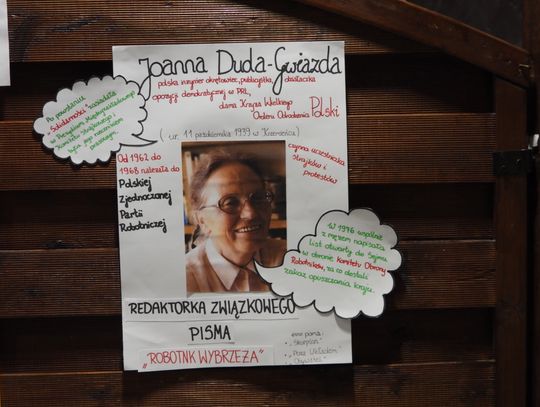 Joanna Duda-Gwiazda
polska inżynier okrętowiec, publicystka, działaczka
opozycji demokratycznej w PRL,
dama Krzyża Wielkiego
Orderu Odrodzenia Polski
(ur. 11 października 1939 w Krzemieńcu)
Po powstaniu
„Solidarności" zasiadała
w Prezydium Międzyzakładowego
Komitetu Strajkowego i
była jego rzecznikiem
prasowym.
Od 1962 do
1968 należała do
Polskiej
Zjednoczonej
Partii
Robotniczej
czynna uczestniczka
strajków i
protestów
W 1976 wspólnie
z mężem napisała
list otwarty do Sejmu
w obronie Komitetu Obrony
Robotników, za co dostali
zakaz opuszczania kraju.
REDAKTORKA ZWIĄZKOWEGO
PISMA
"ROBOTNIK WYBRZEŻA"
oraz pisma:
- "Skorpion"
- "Poza Układem"
- "Obywatel"